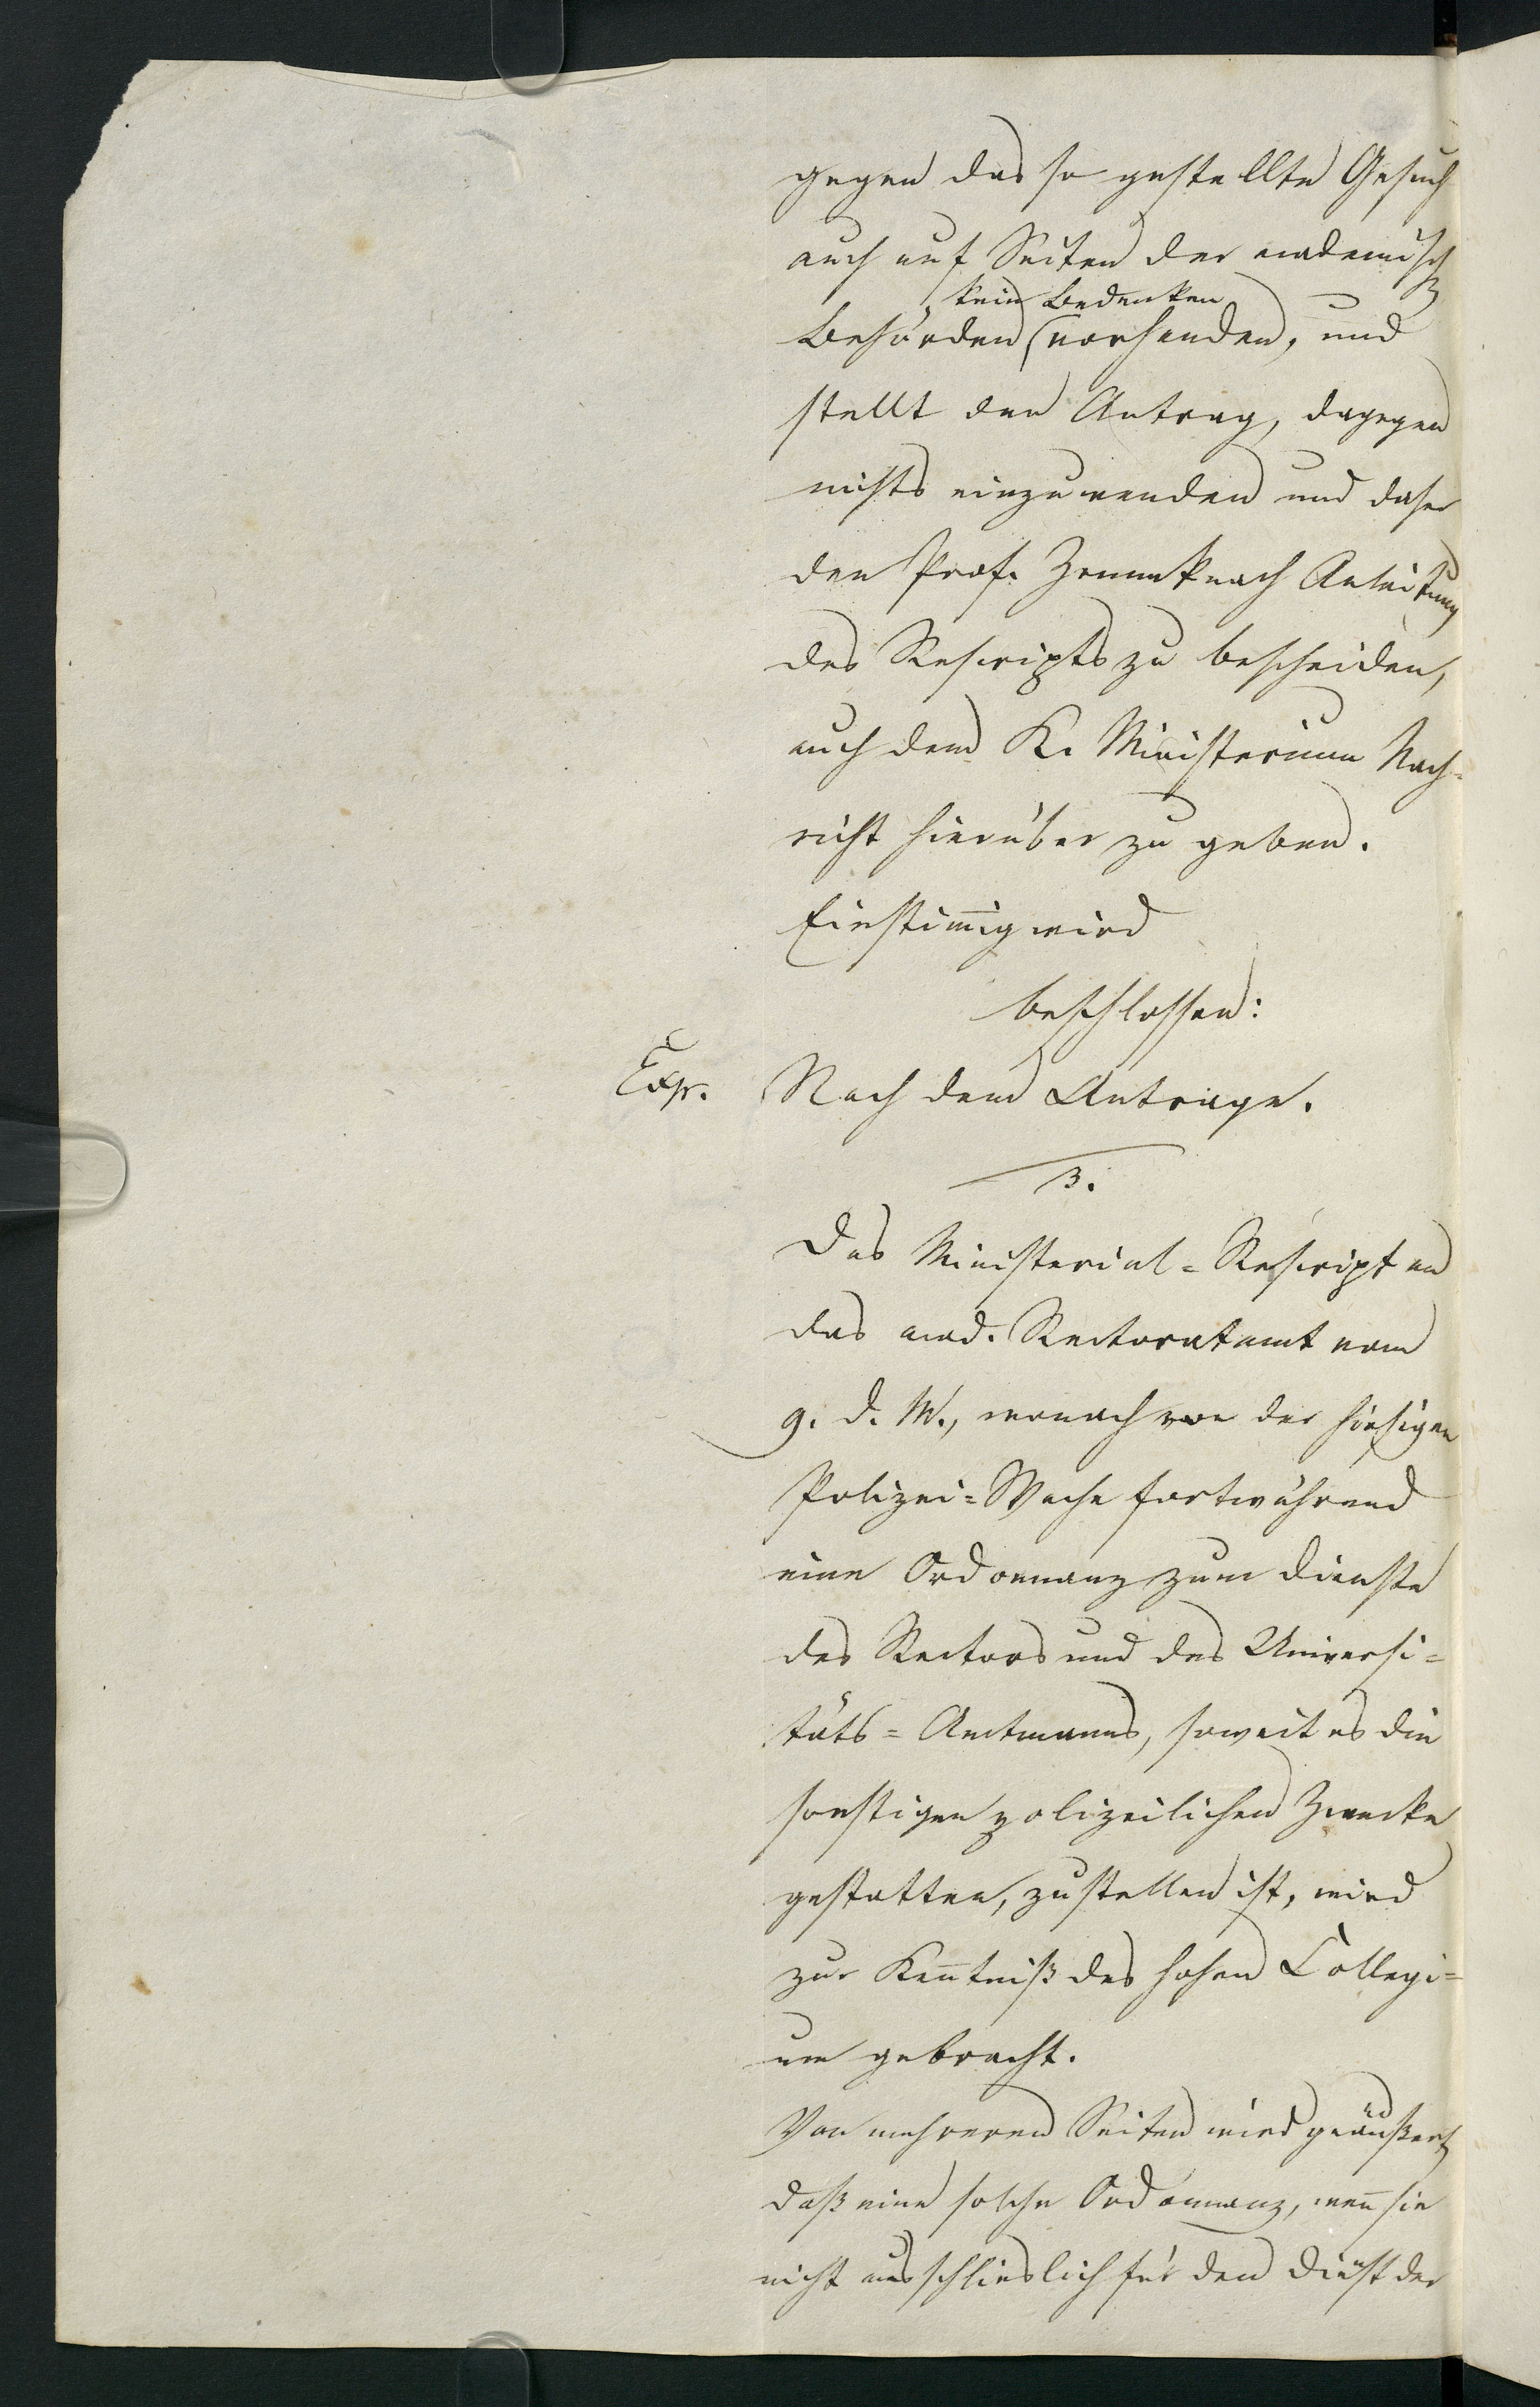 gegen das so gestellte Gesuch
auch auf Seiten der academisch
kein Bedenken
Behörden vorhanden, und
stellt den Antrag, dagegen
nichts einzuwenden und daher
den Prof. nach Anleitung
des Rescripts zu bescheiden,
auch dem K. Ministerium Nach-
richt hierüber zu geben.
Einstimig wird
beschlossen:
Exp. Nach dem Antrage.
3.
Das Ministerial-Rescript an
das acad. Rectoratamt vom
9. d. M., wonach von der hiesigen
Polizei-Wache fortwährend
eine Ordonnanz zum Dienste
des Rectors und des Universi-
täts-Amtmanns, soweit es die
sonstigen polizeilichen Zwecke
gestatten, zu stellen ist, wird
zur Kentniß des hohen Collegi-
um gebracht.
Von mehreren Seiten wird geäußert,
daß eine solche Ordonnanz, wen sie
nicht ausschlieslich für den Dienst der